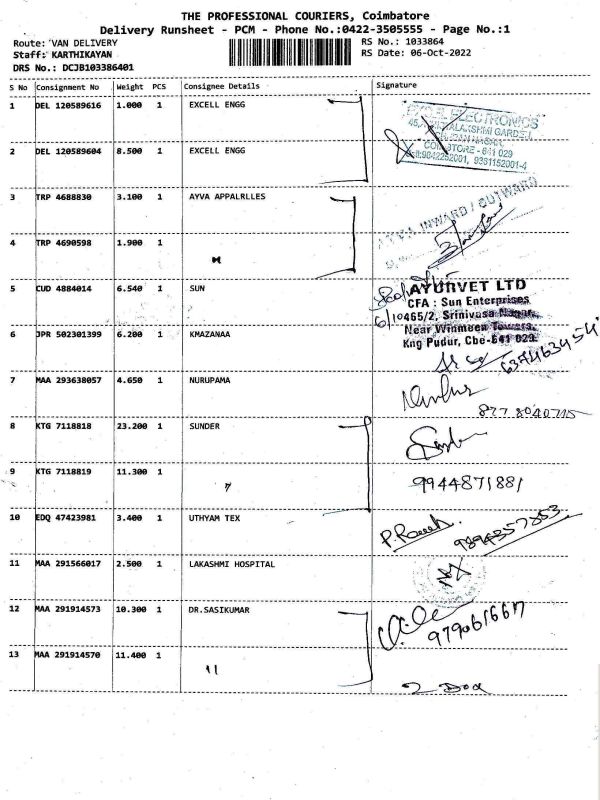 THE PROFESSIONAL COURIERS, Coimbatore
Delivery Runsheet - PCM - Phone No.:0422-3505555 - Page No.:1
Route: VAN DELIVERY
RS No.: 1033864
Staff: KARTHIKAYAN
RS Date: 06-Oct-2022
DRS No.: DCJB103386401
S No Consignment No Weight PCS Consignee Details Signature
1 DEL 120589616 1.000 1 EXCELL ENGG
2 DEL 120589604 8.500 1 EXCELL ENGG
COIMBATORE - 641 029
3 TRP 4688830 3.100 1 AYVA APPALRLLES
INWARD / OUTWARD
4 TRP 4690598 1.900 1
5 CUD 4884014 6.540 1 SUN
AYURVET LTD
CFA : Sun Enterprises
465/2, Srinivasa Nagar,
Near Winmeen Towers,
Kng Pudur, Cbe-641 029.
6 JPR 502301399 6.200 1 KMAZANAA
6374463454
7 MAA 293638057 4.650 1 NURUPAMA
8 KTG 7118818 23.200 1 SUNDER
9 KTG 7118819 11.300 1
9944871881
10 EDQ 47423981 3.400 1 UTHYAM TEX
P. Ramesh
9894357853
11 MAA 291566017 2.500 1 LAKASHMI HOSPITAL
12 MAA 291914573 10.300 1 DR.SASIKUMAR
13 MAA 291914570 11.400 1
11
2 Box